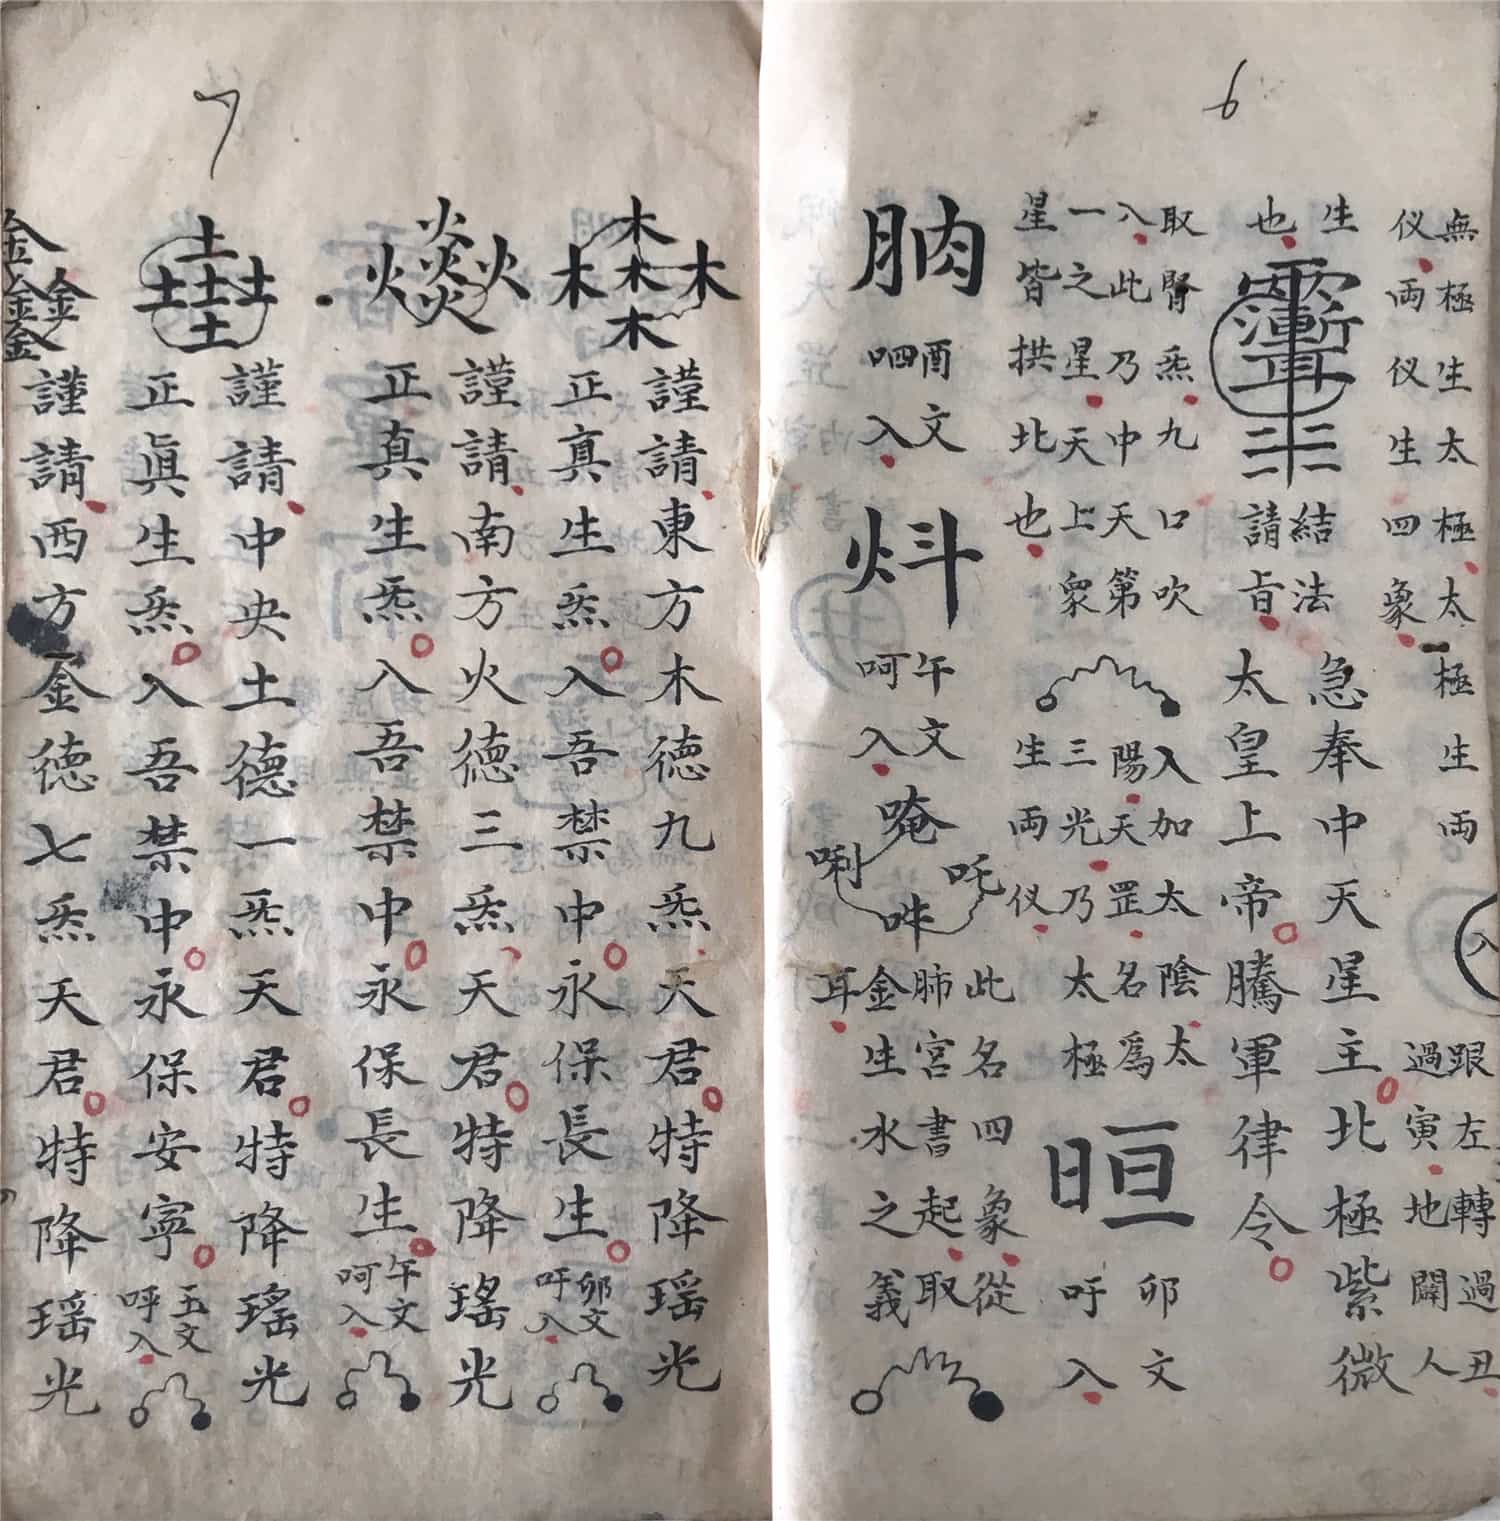 6
無極生太極太極生両
仪両仪生四象
跟左轉過丑
過寅地闢人
生
也
結法
請旨
急奉中天星主北極紫微
太皇上帝騰軍律令
取腎炁九口吹
八此乃中天第
一之星天上眾
星皆拱北也
入加太陰太
陽天罡名為
三光乃太極
生両仪
卯文
吁入
肭
酉文
呬入
炓
午文
呵入
唵
吒
唎
吽
此名四象從
肺宮書起取
金生水之義
耳
7
木木木木木
謹請東方木德九炁天君特降瑶光
正真生炁入吾禁中永保長生
卯文
吁入
火火火火火
謹請南方火德三炁天君特降瑤光
正真生炁入吾禁中永保長生
午文
呵入
土土土土土
謹請中央土德一炁天君特降瑤光
正眞生炁入吾禁中永保安寧
玉文
呼入
金金金金
謹請西方金德七炁天君特降瑶光